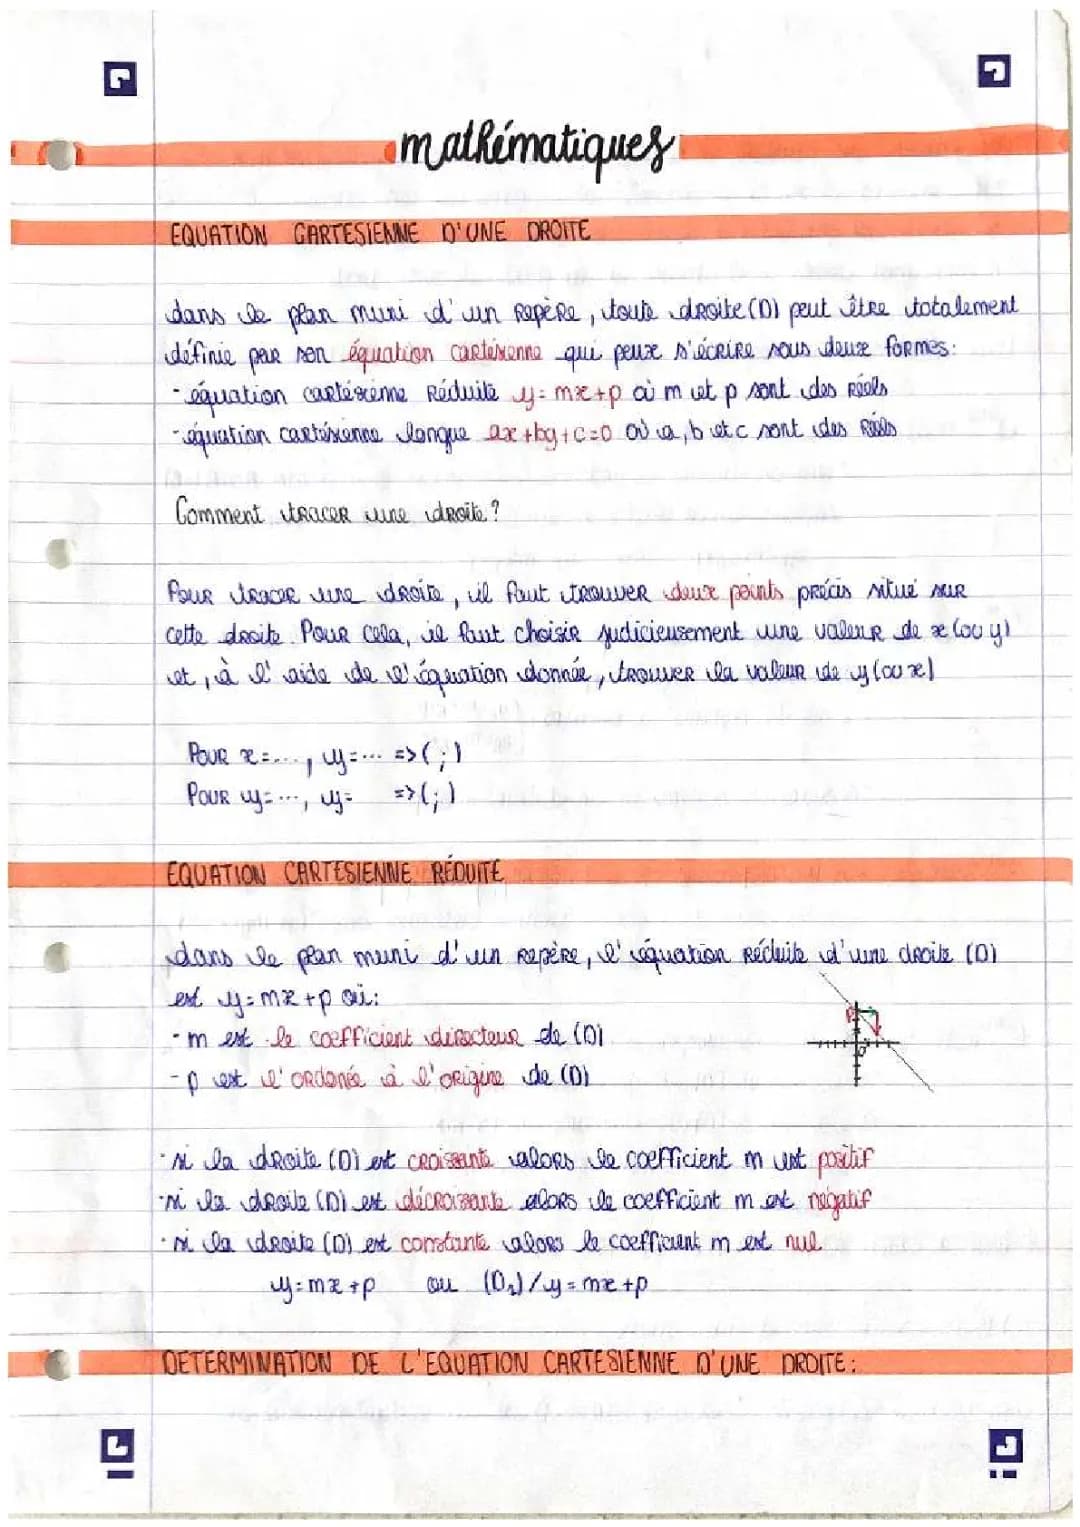 mathématiques
EQUATION CARTESIENNE D'UNE DROITE
dans le plan muni d'un repère, toute droite (D) peut être totalement
définie par son équation cartésienne qui peux s'écrire sous deux formes:
- équation cartésienne réduite y=mx+p où m et p sont des réels
- équation cartésienne longue ax+by+c=0 où a, b et c sont des réels
Comment tracer une droite?
Pour tracer une droite, il faut trouver deux points précis situé sur
cette droite. Pour cela, il faut choisir judicieusement une valeur de x (ou y)
et, à l'aide de l'équation donnée, trouver la valeur de y (ou x)
Pour x=..., y=... =>( ; )
Pour y=..., y= =>( ; )
EQUATION CARTESIENNE RÉDUITE
dans le plan muni d'un repère, l'équation réduite d'une droite (D)
est y=mx+p où:
- m est le coefficient directeur de (D)
- p est l'ordonée à l'origine de (D)
· si la droite (D) est croissante alors le coefficient m est positif
· si la droite (D) est décroissante alors le coefficient m est négatif
· si la droite (D) est constante alors le coefficient m est nul
y=mx+p ou (D₁)/y=mx+p
DETERMINATION DE L'EQUATION CARTESIENNE D'UNE DROITE: